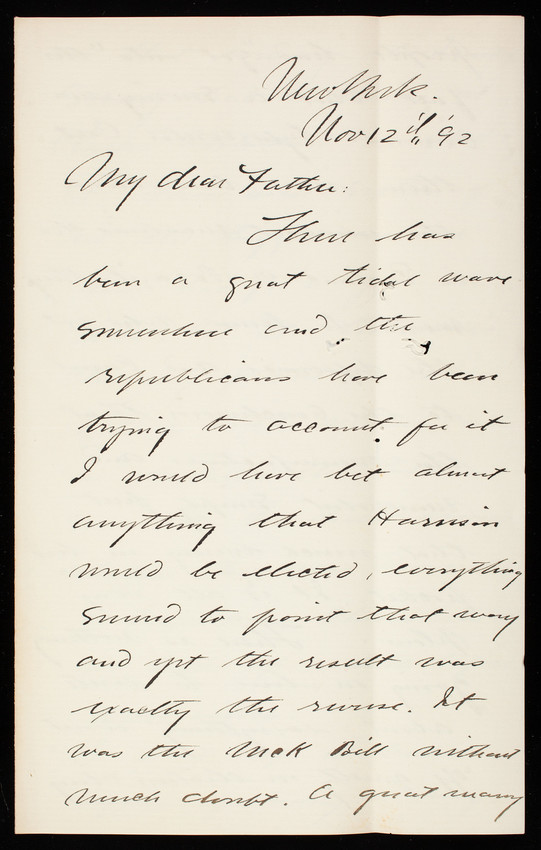 New York.
Nov 12th '92
My dear Father:
There has
been a great tidal wave
somewhere and the
republicans have been
trying to account for it
I would have bet almost
anything that Harrison
would be elected, everything
seemed to point that way
and yet the result was
exactly the reverse. It
was the McK Bill without
much doubt. A great many